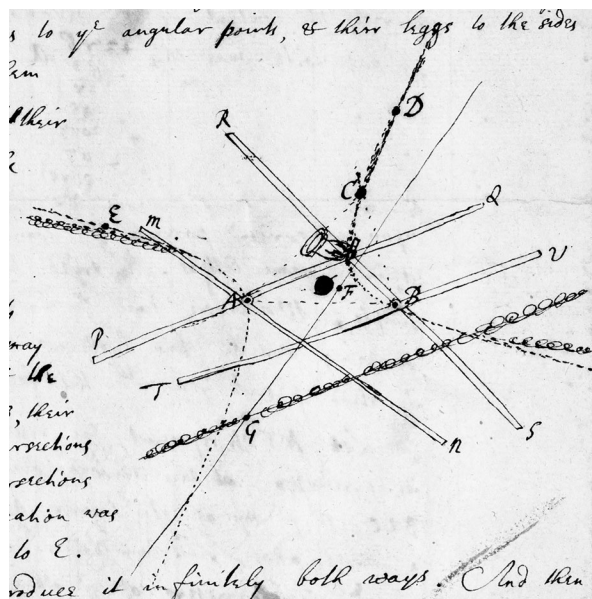 s to yᵉ angular points, & their leggs to the sides
hem
their
R
D
C
Q
E
m
V
A
F
B
P
way
T
the
G
, their
S
n
rsections
rsections
ation was
to E.
roduce it infinitely both ways And then